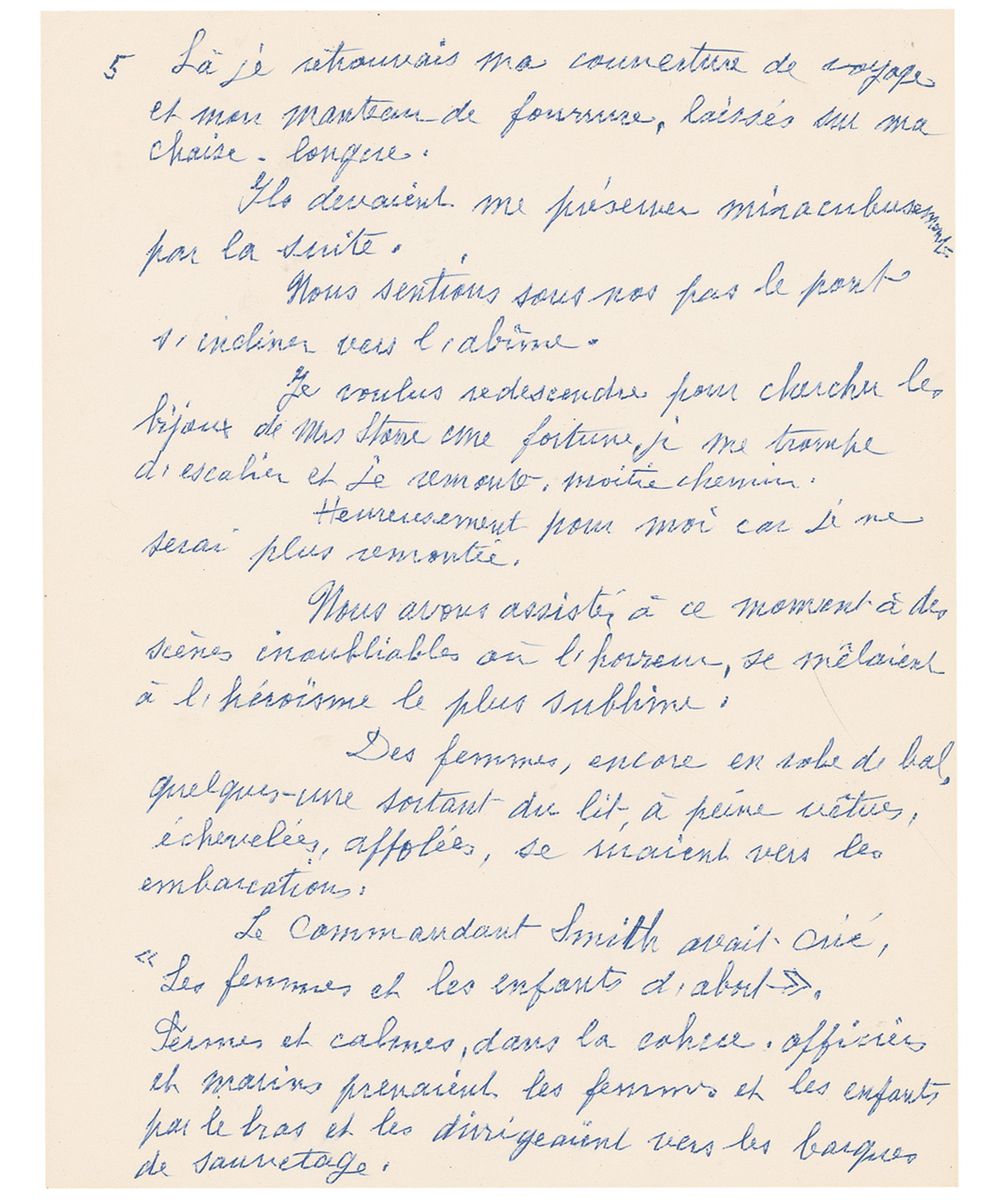 5 Là je retrouvais ma couverture de voyage
et mon manteau de fourrure, laissés sur ma
chaise - longue.
Ils devaient me préserver miraculeusement
par la suite.
Nous sentions sous nos pas le pont
s'incliner vers l'abîme.
Je voulus redescendre pour chercher les
bijoux de Mrs Stone une fortune, je me trompe
d'escalier et je remonte, moitié chemin.
Heureusement pour moi car je ne
serai plus remontée.
Nous avons assisté, à ce moment à des
scènes inoubliables où l'horreur, se mêlaient
à l'héroïsme le plus sublime.
Des femmes, encore en robe de bal,
quelques-une sortant du lit, à peine vêtues,
échevelées, affolées, se ruaient vers les
embarcations.
Le Commandant Smith avait crié,
"Les femmes et les enfants d'abort».
Fermes et calmes, dans la cohue. officiers
et marins prenaient les femmes et les enfants
par le bras et les dirigeaient vers les barques
de sauvetage.